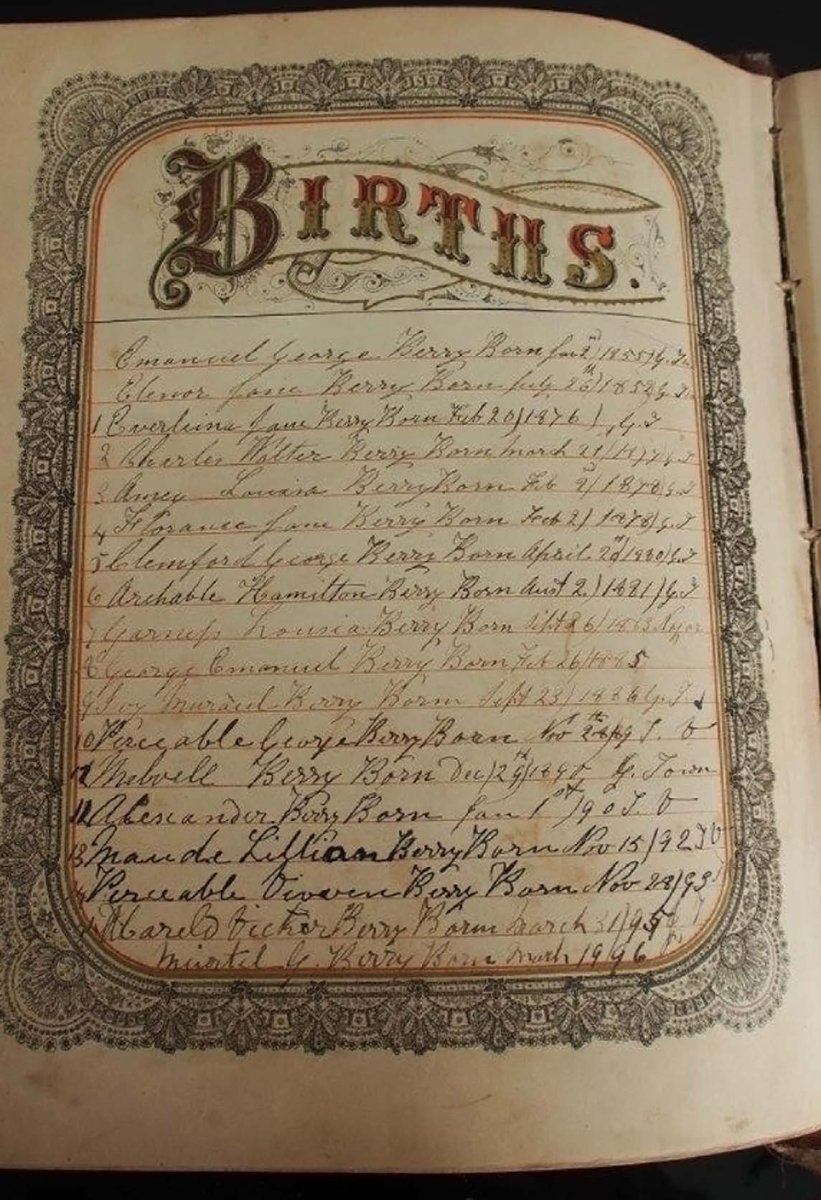 BIRTHS.
Emanuel George Berry Born Jan 2) 1855) G. T.
Elenor Jane Berry Born July 26th) 1858 G. T.
1 Everleina Jane Berry Born Feb 20) 1876 ) G. T
2 Charles Walter Berry Born March 21/1877 G. T
3 Amey Louisa Berry Born Feb 2) 1878 G. T
4 Florance Jane Berry Born Feb 2) 1878) G. T
5 Clemford George Berry Born April 2nd) 1880) G. T
6 Archable Hamilton Berry Born Aust 2.) 1881) G. T
7 Louisia Berry Born Sept 26) 1883
8 George Emanuel Berry Born Feb 26/1885
9 Ivy Berry Born Sept 23) 1886 G. T.
10 Perceable George Berry Born Nov T. V
Melvell Berry Born Dec) 29) 1890 G. Town
Alexander Berry Born Jan 1st) 90 T. V
13 Maude Lillian Berry Born Nov 15) 92 T V
Perceable Vivven Berry Born Nov 28) 93
Hareld Victer Berry Born March 31) 95
G. Berry Born March 19 96